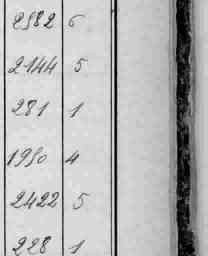 2982 6
2144 5
281 1
1950 4
2422 5
228 1